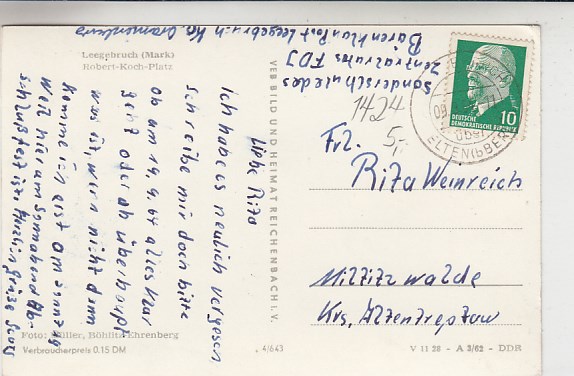 Leegebruch (Mark)
Robert-Koch-Platz
Liebe Rita
Ich habe es neulich vergesen
schreibe mir doch bitte
ob am 19.9.64 alles klar
geht oder ob überhaupt
was ist, wenn nicht dann
komme ich erst am Sonntag
weil hier am Sonnabend Ab-
schlußfest ist. Herzliche Grüße
Foto: Müller, Böhlitz-Ehrenberg
Verbraucherpreis 0.15 DM
4/643
VEB BILD UND HEIMAT REICHENBACH i. V.
Sonderschule des
Zentralrats FDJ
Post Leegebruch Kr. Oranienburg
1424
5,-
DEUTSCHE
DEMOKRATISCHE REPUBLIK
10
Frl.
Rita Weinreich
Miltitzwalde
Krs. Altentreptow
V 11 28 - A 3/62 - DDR